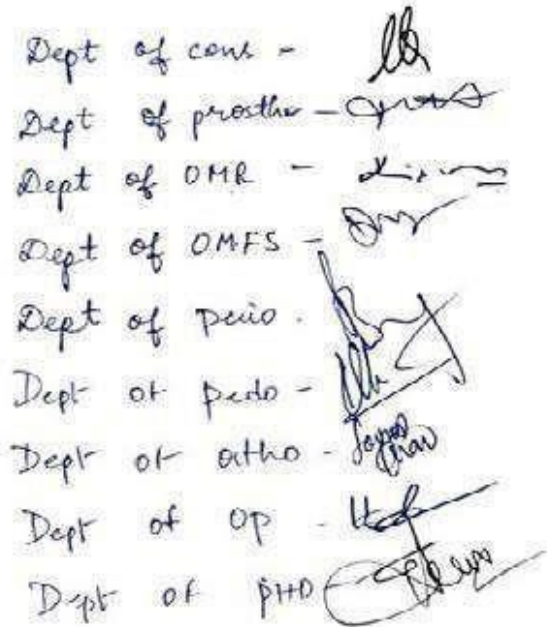 Dept of cons -
Dept of prostho -
Dept of OMR -
Dept of OMFS -
Dept of perio -
Dept of pedo -
Dept of ortho -
Dept of OP -
Dept of PHD -